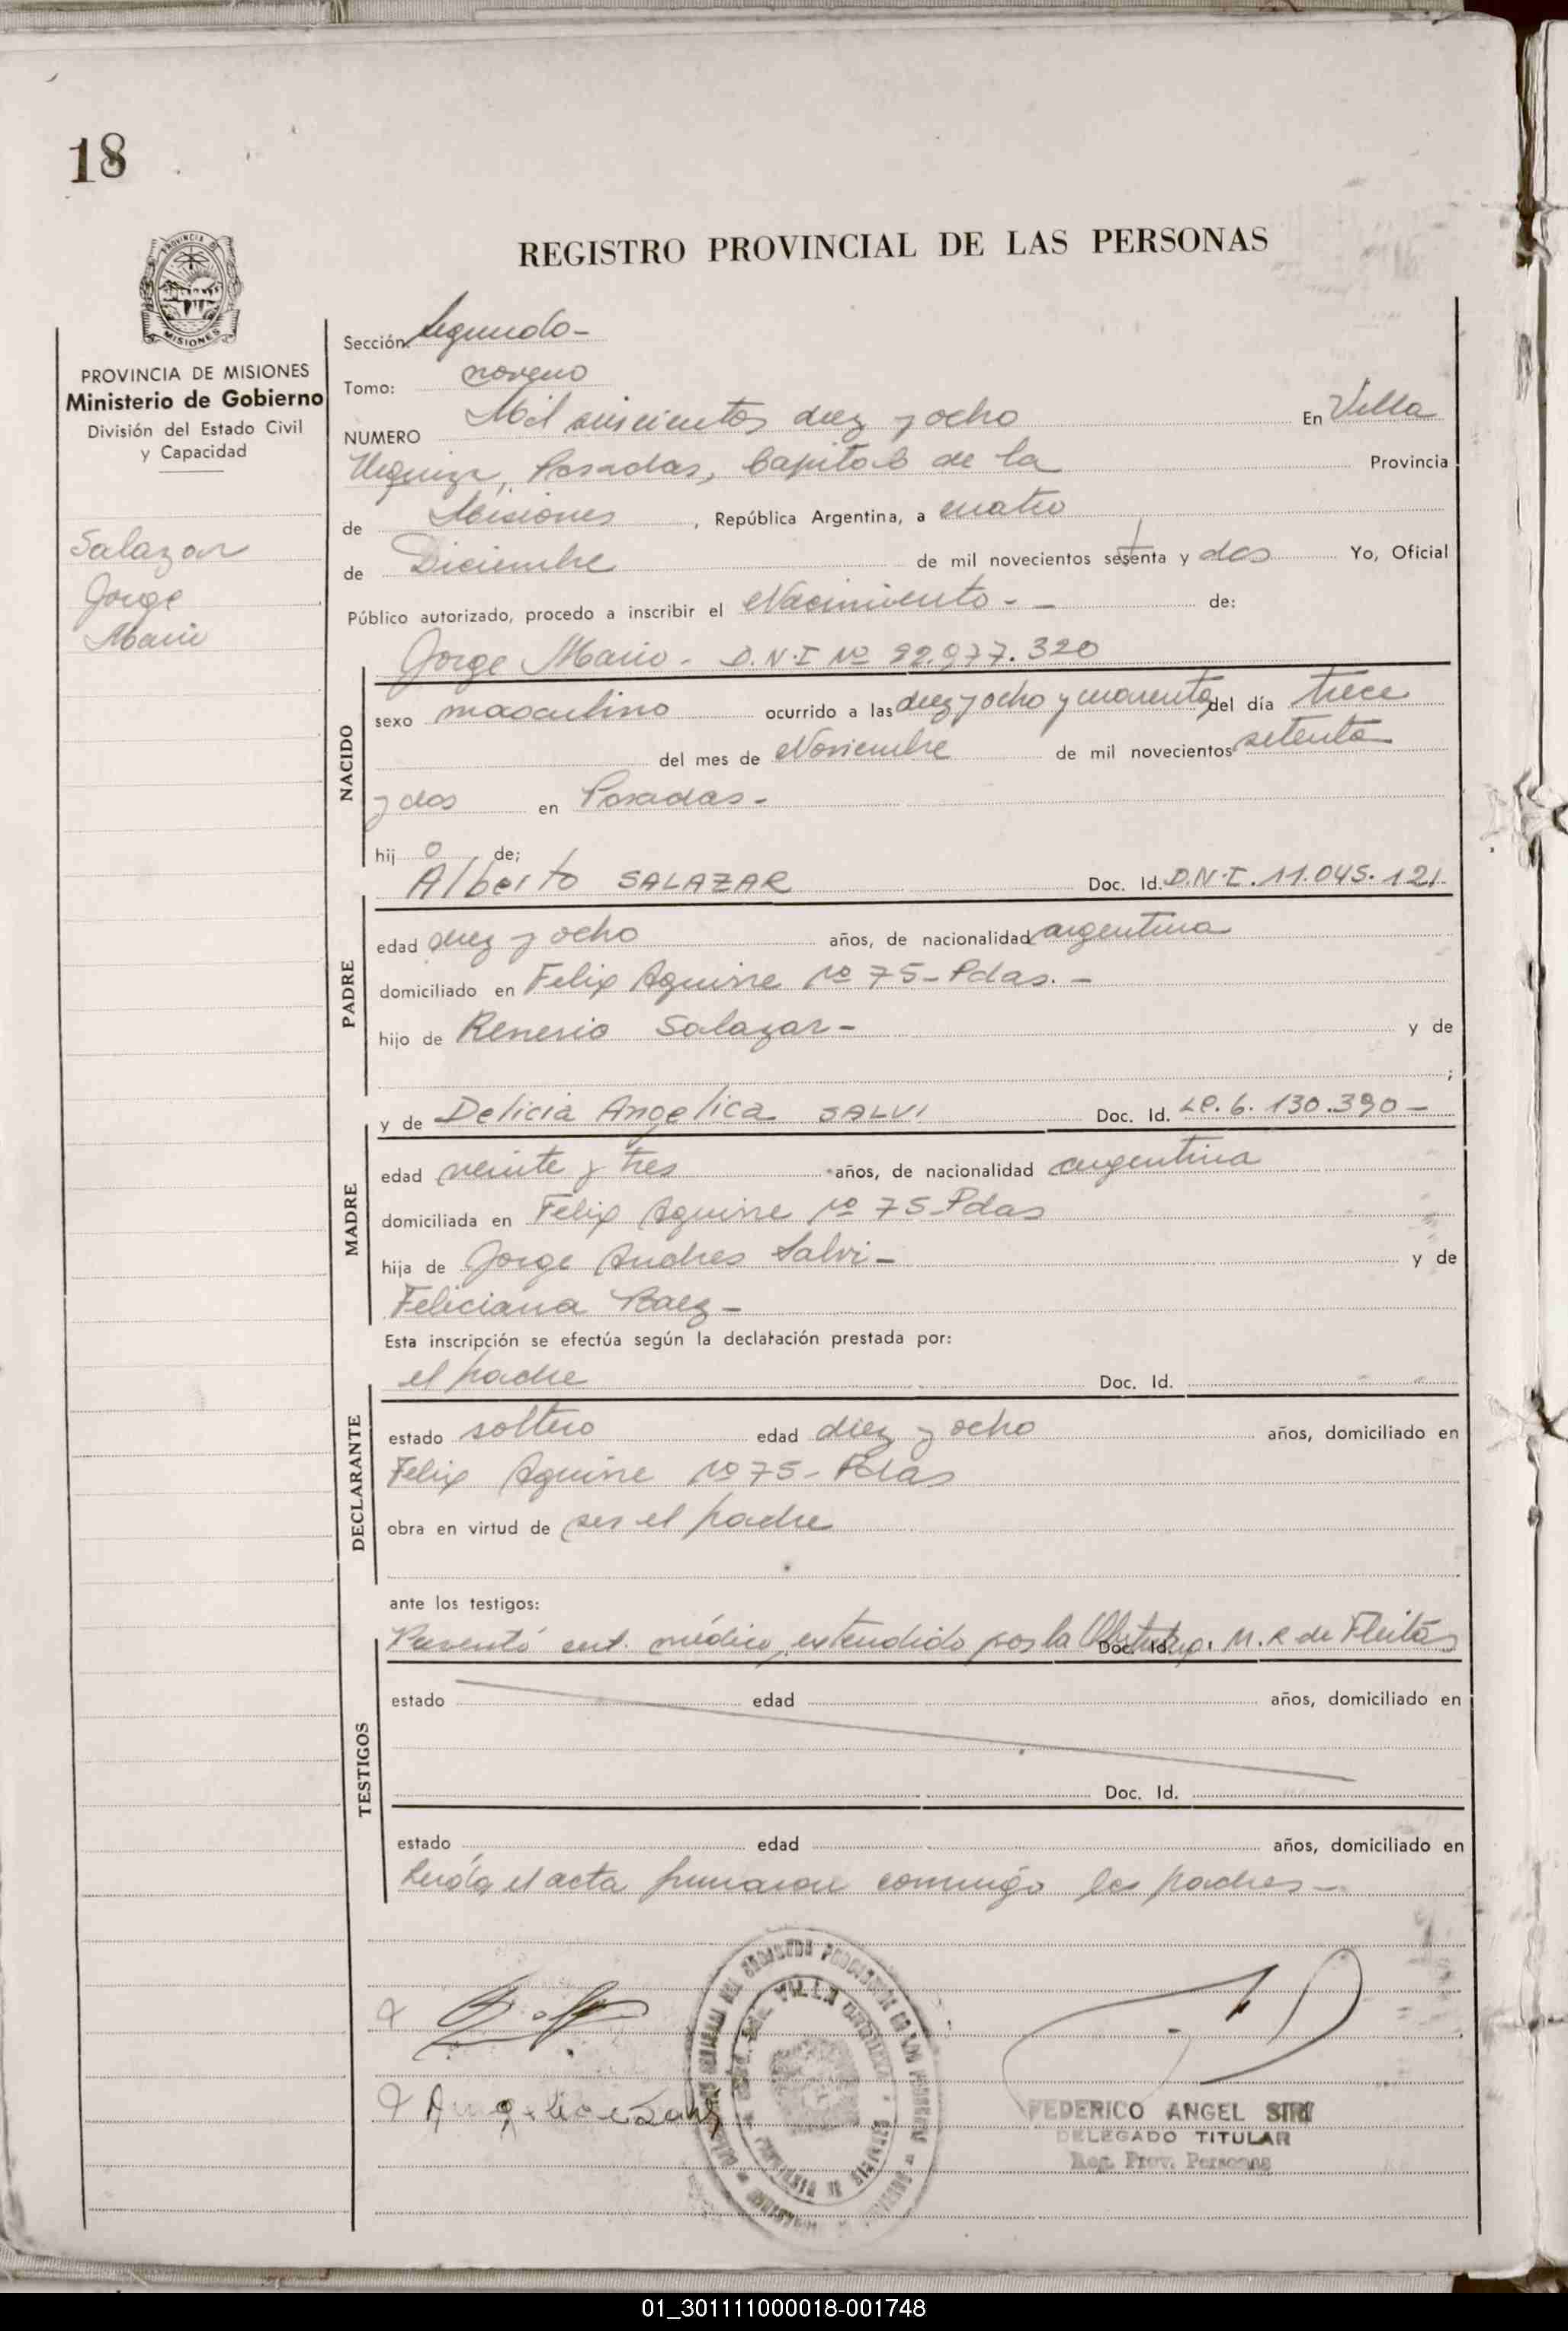 18
REGISTRO PROVINCIAL DE LAS PERSONAS
PROVINCIA DE MISIONES
Ministerio de Gobierno
División del Estado Civil
y Capacidad
Salazar
Jorge
Mario
Sección: Segundo-
Tomo: noveno
NUMERO Mil seiscientos diez y ocho En Villa
Urquiza, Posadas, Capital de la Provincia
de Misiones, República Argentina, a cuatro
de Diciembre de mil novecientos setenta y dos Yo, Oficial
Público autorizado, procedo a inscribir el Nacimiento - - de:
Jorge Mario - D.N.I Nº 22.977.320
NACIDO
sexo masculino ocurrido a las diez y ocho y cuarenta del día trece
del mes de Noviembre de mil novecientos setenta
y dos en Posadas -
hij o de;
Alberto SALAZAR Doc. Id. D.N.I. 11.045.121
PADRE
edad diez y ocho años, de nacionalidad argentina
domiciliado en Felix Aguirre Nº 75 - Pdas. -
hijo de Renerio Salazar - y de
;
y de Delicia Angelica SALVI Doc. Id. LC. 6.130.390 -
MADRE
edad veinte y tres años, de nacionalidad argentina
domiciliada en Felix Aguirre Nº 75 - Pdas
hija de Jorge Andres Salvi - y de
Feliciana Baez -
Esta inscripción se efectúa según la declaración prestada por:
el padre Doc. Id.
DECLARANTE
estado soltero edad diez y ocho años, domiciliado en
Felix Aguirre Nº 75 - Pdas
obra en virtud de ser el padre
ante los testigos:
Presentó cert. médico, extendido por la Obstetra: M. R de Fleitas
Doc. Id.
TESTIGOS
estado edad años, domiciliado en
Doc. Id.
estado edad años, domiciliado en
Leída el acta firmaron conmigo los padres -
VILLA URQUIZA
FEDERICO ANGEL SIRI
DELEGADO TITULAR
Reg. Prov. Personas
01_301111000018-001748